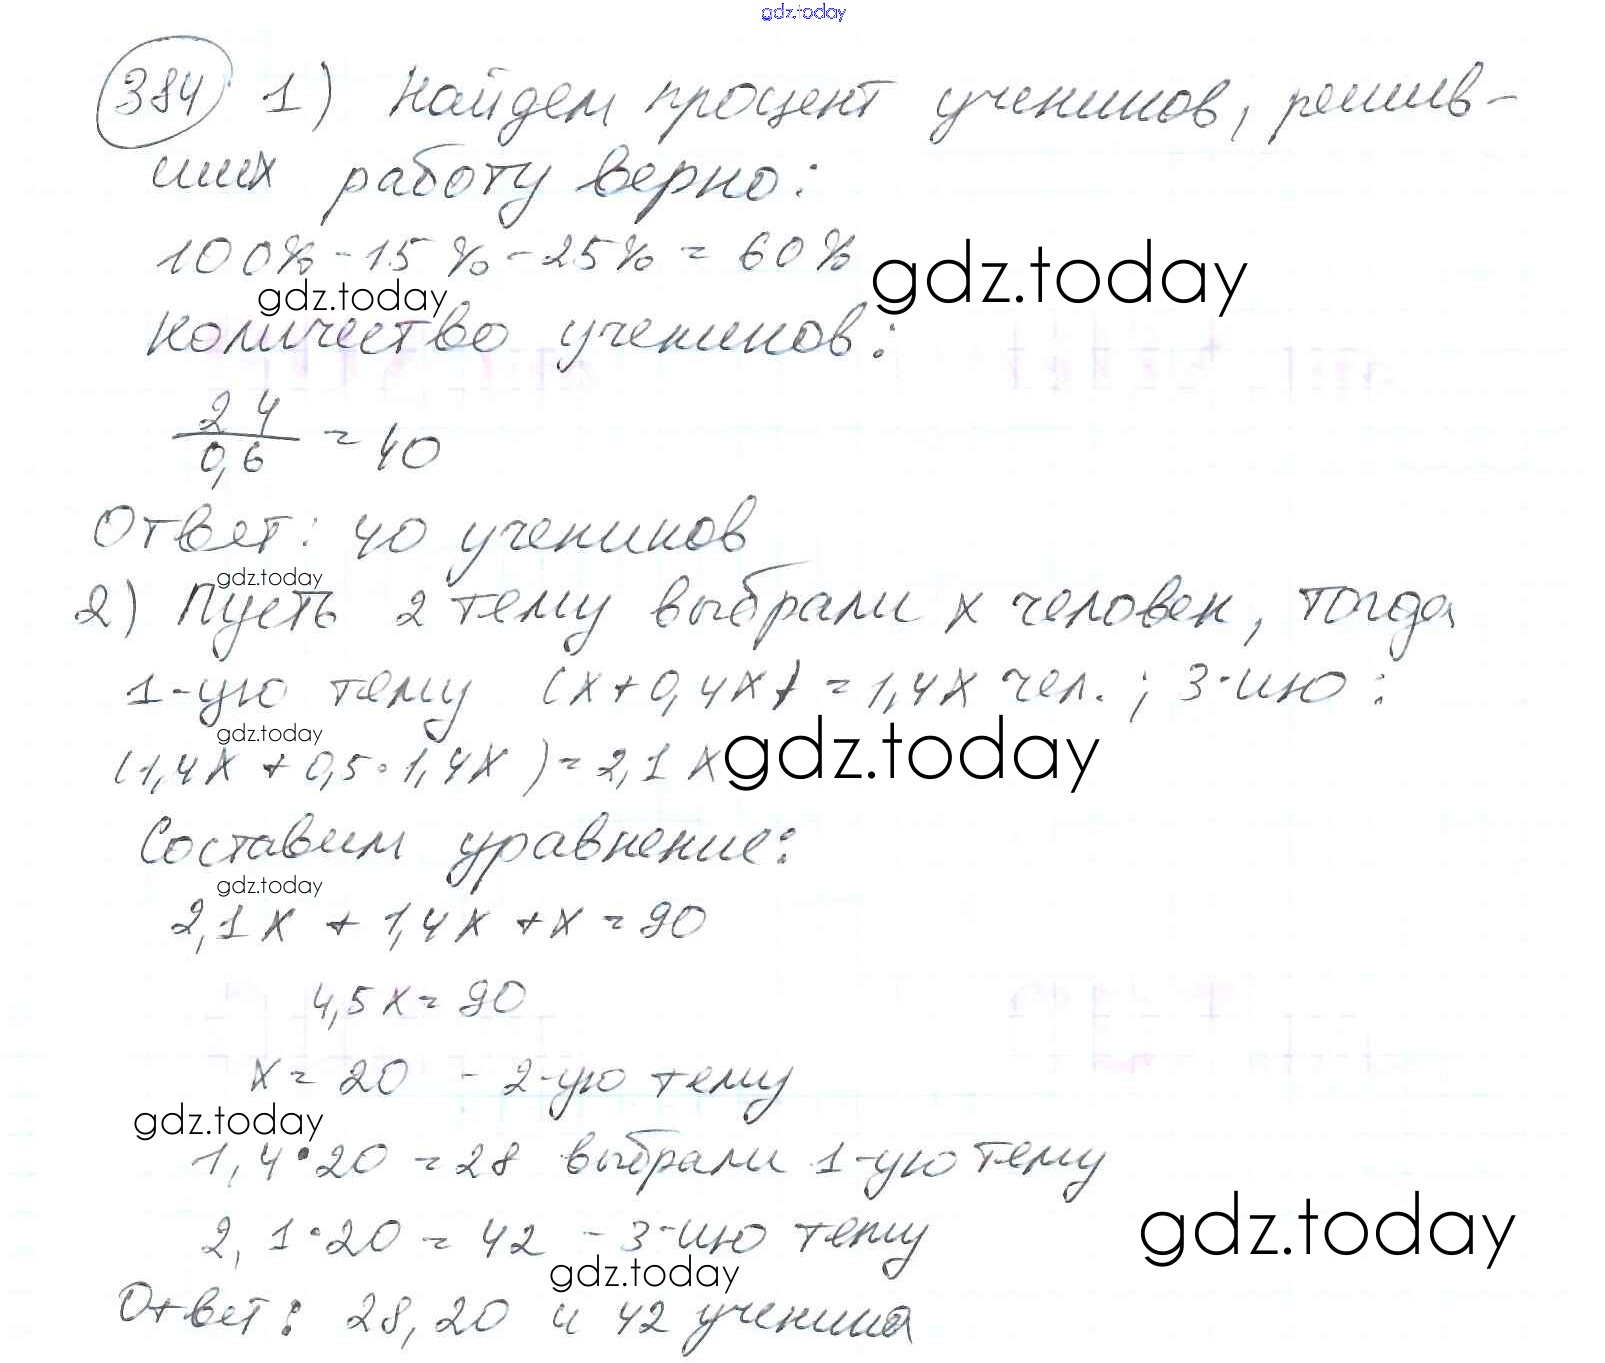 gdz.today
384 1) Найдем процент учеников, решив-
ших работу верно:
100% - 15% - 25% = 60%
gdz.today
gdz.today
Количество учеников:
24
0,6
= 40
Ответ: 40 учеников
gdz.today
2) Пусть 2 тему выбрали x человек, тогда
1-ую тему (x + 0,4x) = 1,4x чел.; 3-ию:
gdz.today
(1,4x + 0,5·1,4x) = 2,1x
gdz.today
Составим уравнение:
gdz.today
2,1x + 1,4x + x = 90
4,5x = 90
x = 20 - 2-ую тему
gdz.today
1,4·20 = 28 выбрали 1-ую тему
2,1·20 = 42 - 3-ию тему
gdz.today
gdz.today
Ответ: 28, 20 и 42 ученика